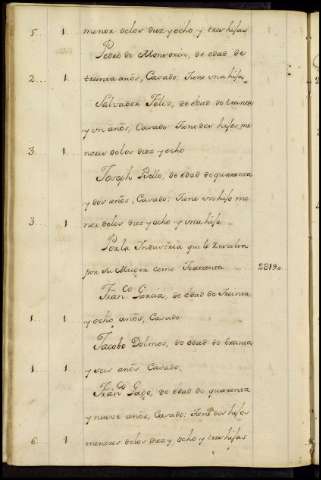 5 1 menor de los diez y ocho y tres hijas
Pedro de Monrroy, de edad de
2 1 treinta años, Casado. Tiene una hija
Salvador Feliz, de edad de treinta
y un años, Casado. Tiene dos hijos me
3 1 nores de los diez y ocho
Joseph Vello, de edad de quarenta
y dos años, Casado: Tiene un hijo me
3 1 nor de los diez y ocho y una hija
Por la Industria que le
por su Muger como 2819
Fran.co Garzia, de edad de treinta
1 1 y ocho años, Casado
Jacobo Dolmos, de edad de treinta
1 1 y seis años Casado
Fran.co Gago, de edad de quarenta
y nueve años, Casado; Tiene dos hijos
6 1 menores de los diez y ocho y tres hijas